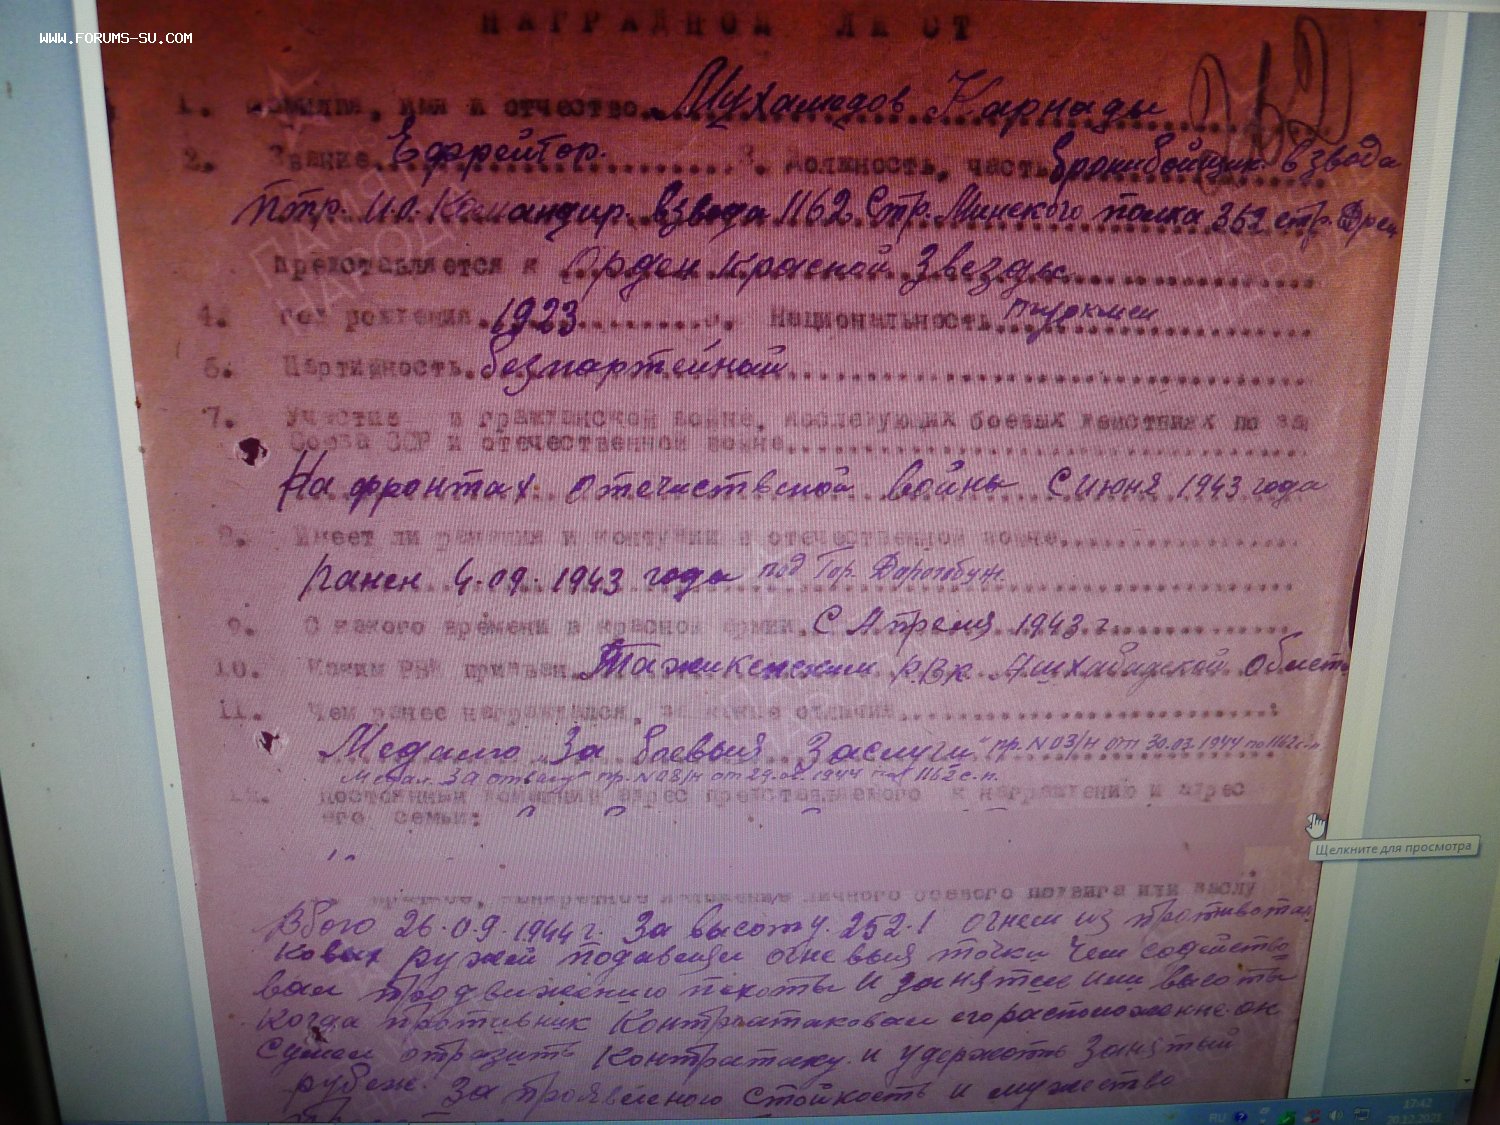 WWW.FORUMS-SU.COM
НАГРАДНОЙ ЛИСТ
1. Фамилия, имя и отчество Мухамедов Карнады
2. Звание Ефрейтор. 3. Должность, часть бронибойщик взвода
птр. И.О. Командир. взвода 1162 Стр. Минского полка 362 стр.
представляется к Орден Красной Звезды
4. Год рождения 1923 5. Национальность туркмен
6. Партийность безпартейный
7. Участие в гражданской войне, последующих боевых действиях по за
Союза ССР и отечественной войне
На фронтах отечиственой войны С июня 1943 года
8. Имеет ли ранения и контузии в отечественной войне
ранен 4.09.1943 года под Гор. Дарогобуж.
9. С какого времени в красной армии С Апреля 1943 г.
10. Каким РВК призван РВК Ашхабадской Област
11. Чем ранее награждался, за какие отличия
Медалю "За боевыя Заслуги" пр. N 03/н от 1944 по 1162 с.п
Медал. За отвагу" пр. N 08/н от 1944 1162 с.п.
12. постоянный домашний адрес представляемого к награждению и адрес
его семьи:
личного боевого подвига или заслу
Вбою 26.09.1944 г. За высоту 252.1 огнем из противотан
ковых ружей подавлял огневыя точки Чем содейство
вал продвижению пехоты и занятие ими высоты
Когда противник Контратаковал его расположение он
Сумел отразить Контратаку и удержать Занятый
рубеж. За проявленою Стойкость и мужество
Щелкните для просмотра
RU
17:42
20.12.2021